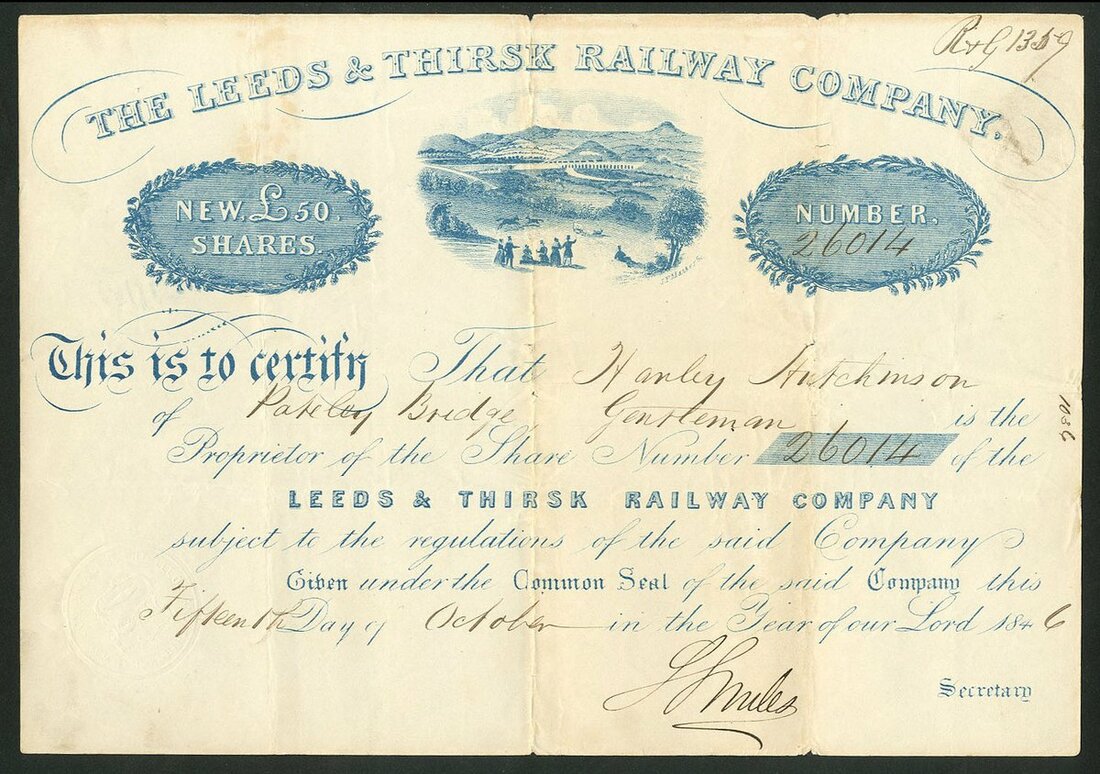 R & G 1359
THE LEEDS & THIRSK RAILWAY COMPANY.
NEW. £50.
SHARES.
NUMBER.
26014
This is to certify That Hanley Hutchinson
of Pateley Bridge, Gentleman is the
Proprietor of the Share Number 26014 of the
LEEDS & THIRSK RAILWAY COMPANY
subject to the regulations of the said Company
Given under the Common Seal of the said Company this
Fifteenth Day of October in the Year of our Lord 1846
S Smiles
Secretary
1086